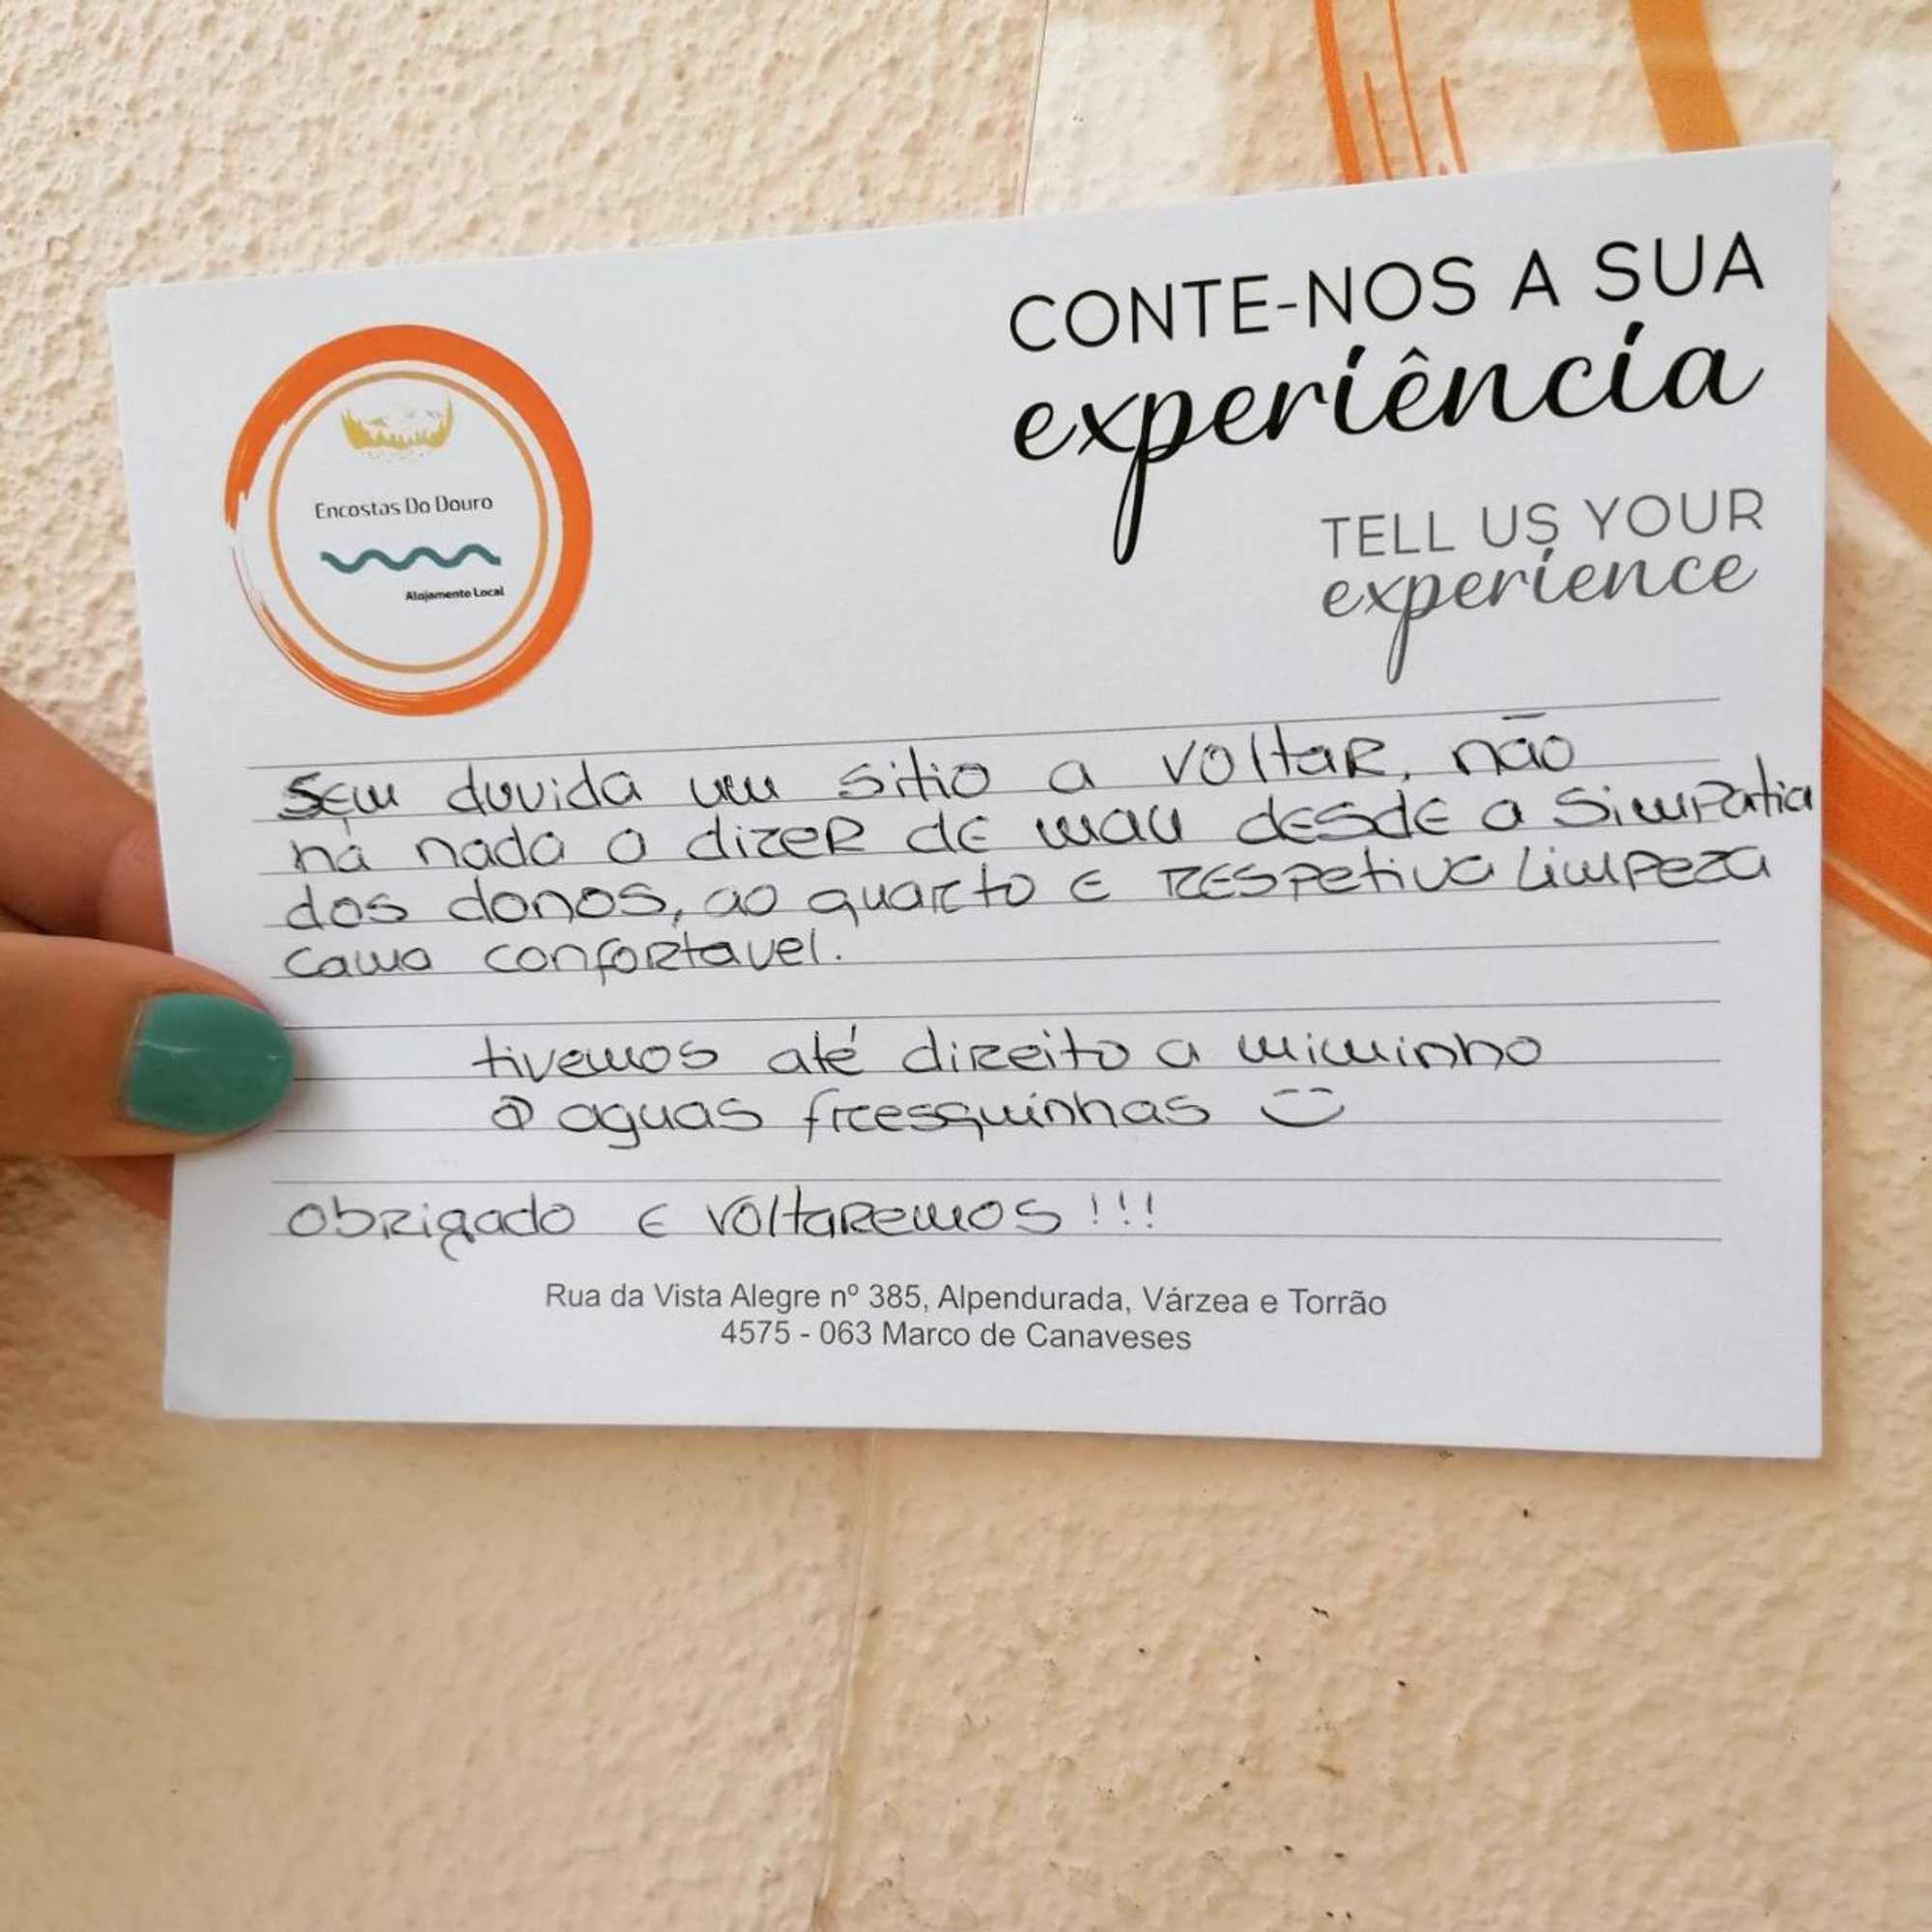 CONTE-NOS A SUA
experiência
TELL US YOUR
experience
Encostas Do Douro
Alojamento Local
Sem duvida um sitio a voltar, não
há nada a dizer de mau desde a simpatia
dos donos, ao quarto e respetiva limpeza
cama confortavel.
tivemos até direito a miminho
aguas fresquinhas
obrigado e voltaremos!!!
Rua da Vista Alegre nº 385, Alpendurada, Várzea e Torrão
4575 - 063 Marco de Canaveses